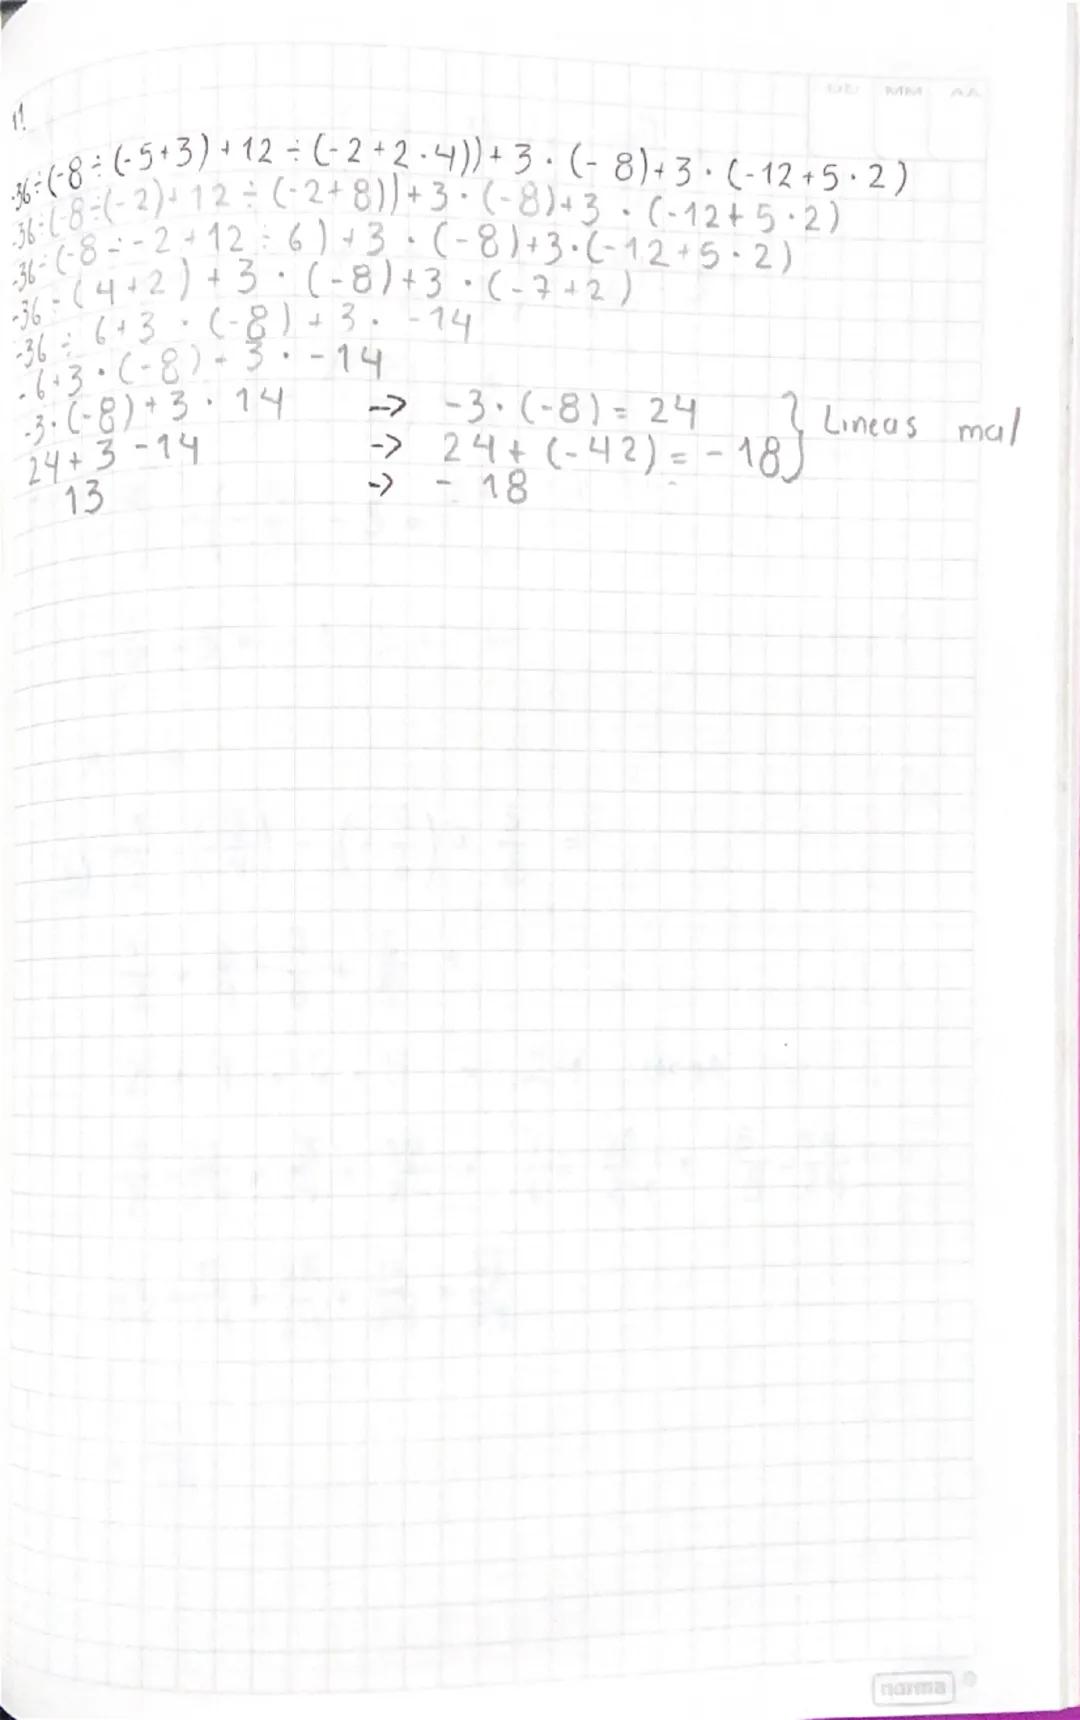 DD MM AA
1!
-36÷(-8÷(-5+3)+12÷(-2+2·4))+3·(-8)+3·(-12+5·2)
-36÷(-8÷(-2)+12÷(-2+8))+3·(-8)+3·(-12+5·2)
-36÷(-8÷-2+12÷6)+3·(-8)+3·(-12+5·2)
-36÷(4+2)+3·(-8)+3·(-7+2)
-36÷6+3·(-8)+3·-14
-6+3·(-8)+3·-14
-3·(-8)+3·14 -> -3·(-8)=24
24+3-14 -> 24+(-42)=-18} Lineas mal
13 -> -18
norma